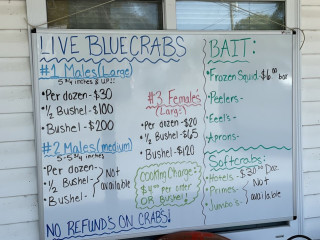 LIVE BLUECRABS
#1 Males (Large)
5 3/4 inches & UP!:
• Per dozen - $30
• 1/2 Bushel - $100
• Bushel - $200
#2 Males (medium)
5-5 3/4 inches
• Per dozen -
• 1/2 Bushel -
• Bushel -
Not available
#3 Females
(Large):
• Per dozen - $20
• 1/2 Bushel - $65
• Bushel - $120
Cooking Charge:
$4.00 per order
OR Bushel!
NO REFUNDS ON CRABS!
BAIT:
• Frozen Squid - $6.00 box
• Peelers -
• Eels -
• Aprons -
Softcrabs:
• Hotels - $30.00 Doz.
• Primes -
• Jumbo's -
Not available